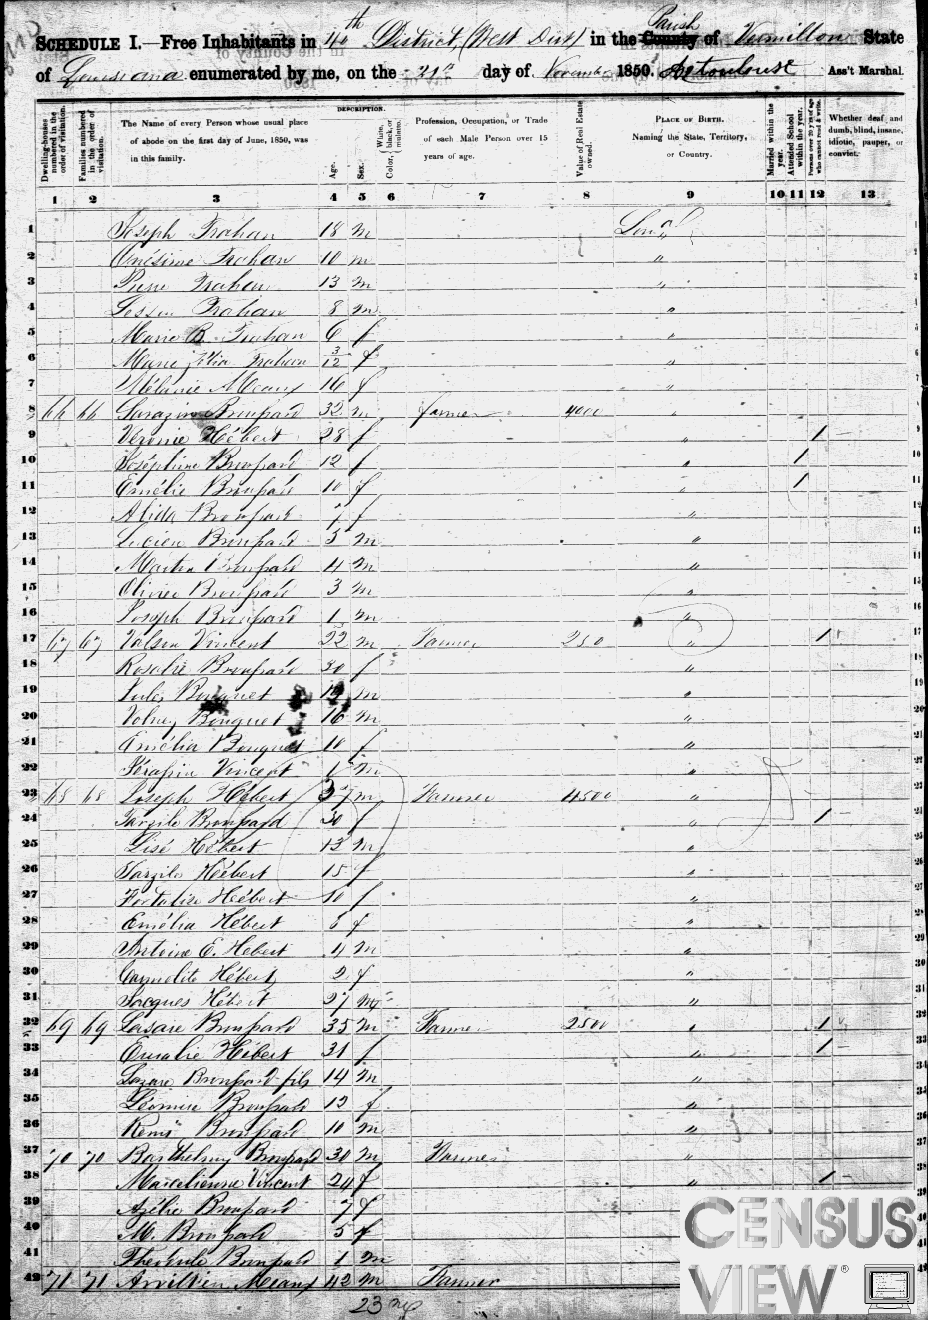 SCHEDULE I.—Free Inhabitants in 4th District (West Dist) in the County Parish of Vermillon State
of Louisiana enumerated by me, on the 21st day of November 1850. Ass't Marshal.
Dwelling-houses numbered in the order of visitation.
Families numbered in the order of visitation.
The Name of every Person whose usual place of abode on the first day of June, 1850, was in this family.
DESCRIPTION.
Age.
Sex.
Color, White, black, or mulatto.
Profession, Occupation, or Trade of each Male Person over 15 years of age.
Value of Real Estate owned.
PLACE OF BIRTH.
Naming the State, Territory, or Country.
Married within the year.
Attended School within the year.
Persons over 20 y'rs of age who cannot read & write.
Whether deaf and dumb, blind, insane, idiotic, pauper, or convict.
1 2 3 4 5 6 7 8 9 10 11 12 13
1 Joseph Trahan 18 m Loua
2 Onesime Trahan 10 m "
3 Pierre Trahan 13 m "
4 Lessin Trahan 8 m "
5 Marie B. Trahan 6 f "
6 Marie Trahan 3/12 f "
7 Mélanie Meaux 16 f "
8 66 66 Sarazin Broussard 32 m farmer 4000 "
9 Veronie Hébert 28 f " 1
10 Joséphine Broussard 12 f " 1
11 Emélie Broussard 10 f " 1
12 Alida Broussard 7 f "
13 Lucien Broussard 5 m "
14 Martin Broussard 4 m "
15 Olivier Broussard 3 m "
16 Joseph Broussard 1 m "
17 67 67 Valsin Vincent 22 m Farmer 250 " 1
18 Rosalie Broussard 30 f "
19 Jules Bouquet m "
20 Volney Bouquet 16 m "
21 Amélia Bouquet 10 f "
22 Sérafin Vincent 1 m "
23 68 68 Joseph Hébert 37 m Farmer 4500 "
24 Tarzile Broussard 30 f " 1
25 Lisé Hébert 13 m "
26 Tarzile Hébert 15 f "
27 Hébert 10 f "
28 Emélia Hébert 6 f "
29 Antoine E. Hebert 4 m "
30 Carmelite Hébert 2 f "
31 Jacques Hébert 27 m "
32 69 69 Lasare Broussard 35 m Farmer 2500 " 1
33 Euralie Hébert 31 f " 1
34 Lazare Broussard fils 14 m "
35 Léonise Broussard 12 f "
36 Remi Broussard 10 m "
37 70 70 Barthelmy Broussard 30 m Farmer "
38 Marcelienne Vincent 24 f " 1
39 Azélie Broussard 7 f
40 M. Broussard 5 f
41 Theodule Broussard 1 m
42 71 71 Meaux 42 m Farmer
23 m
CENSUS
VIEW®